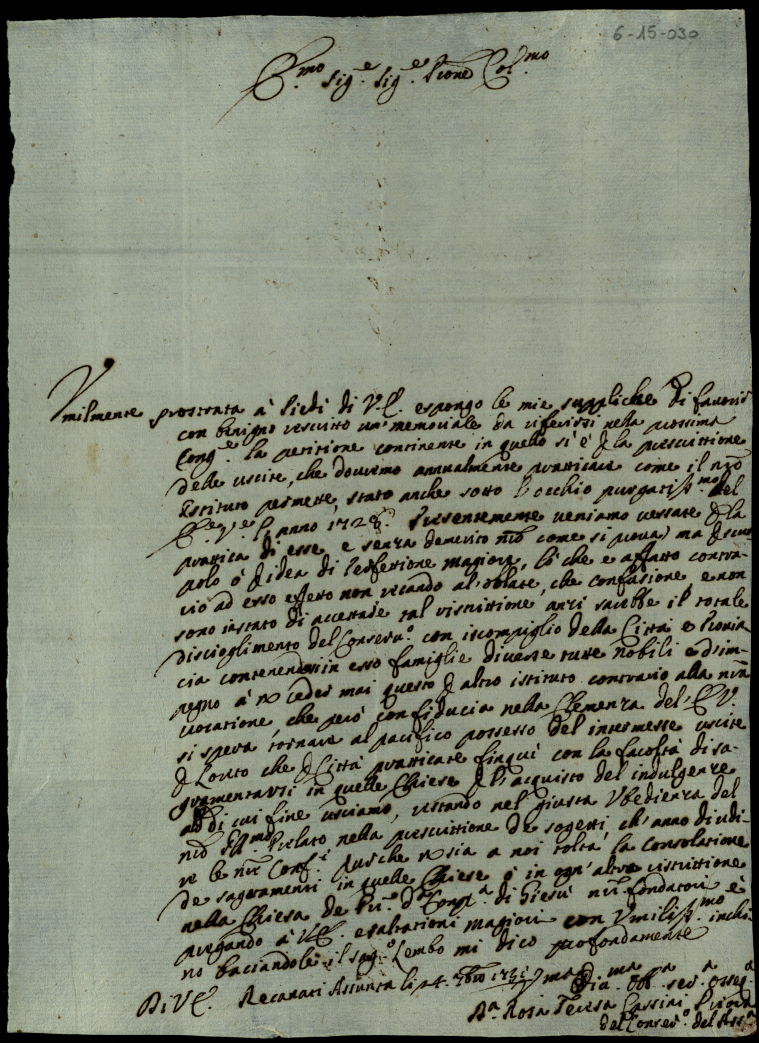 6-15-030
E.mo Sig.e Sig.e P̄rone Col.mo
Umilmente prostrata à Piedi di V.E. espongo le mie suppliche di favorir
con benigno rescritto un' memoriale da riferirsi nella prossima
Cong.e la petitione continente in quello si è p la prescrittione
delle uscite, che dovremo annualmente pratticare come il n̄ro
Istituto permette, stato anche sotto l'occhio purgatiss.mo del
anno 1728. Presentemente veniamo vessate p la
prattica di esse, e senza demerito n̄ro come si prova, ma p scru
polo ò p idea di Perfettione magiore, lò che e affatto contra-
rio ad esso effetto non recando al'oblate, che confusione, e non
sono in stato di accettare tal ristrittione anzi sarebbe il totale
discioglimento del Conserv.o con iscompiglio della Città e Provin
cia contenendosi in esso famiglie diverse tutte nobili e d'im-
pegno à n̄ ceder mai questo p altro istituto contrario alla n̄ra
vocatione, che però confiducia nella Clemenza del' E.V.
si spera tornare al pacifico possesso del intermesse uscite
p Loreto che p Città pratticate fin qui con la facoltà di sa-
gramentarsi in quelle Chiese p l'acquisto del indulgenze
di cui fine usciamo, restando nel giusta Ubedienza del
n̄ro Prelato, nella prescrittione de sogetti, ch' anno di udi-
re le n̄re Conf.i Ausche n̄ sia a noi tolta la consolatione
de sagramenti in quelle Chiese ò in ogn' altra ristrittione
nella Chiesa de di Giesù n̄ri fondatori è
pregando à V.E. esaltationi magiori con Umiliss.mo inchi
no baciandole il sag.o Lembo mi dico profondamente
Di V.E. Recanati Assunta li
D.a Rosa Teresa Cassini Priora
del Conser.o del Ass.a